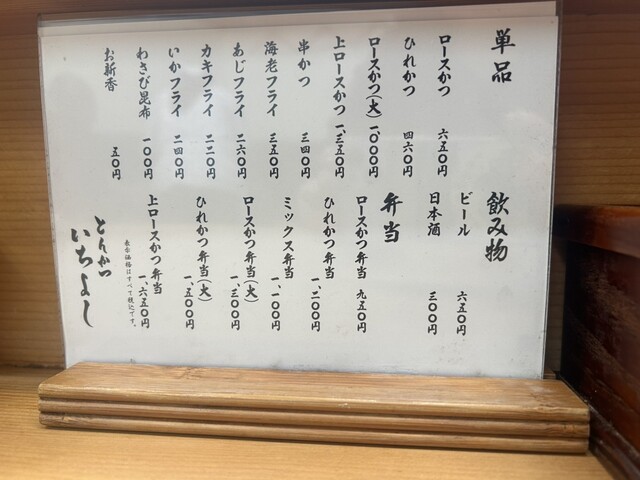 単品
ロースかつ 六五〇円
ひれかつ 四六〇円
ロースかつ(大) 一、〇〇〇円
上ロースかつ 一、三五〇円
串かつ 三四〇円
海老フライ 三五〇円
あじフライ 二六〇円
カキフライ 二二〇円
いかフライ 二四〇円
わさび昆布 一〇〇円
お新香 五〇円
飲み物
ビール 六五〇円
日本酒 三〇〇円
弁当
ロースかつ弁当 九五〇円
ひれかつ弁当 一、二〇〇円
ミックス弁当 一、一〇〇円
ロースかつ弁当(大) 一、三〇〇円
ひれかつ弁当(大) 一、五〇〇円
上ロースかつ弁当 一、六五〇円
表示価格はすべて税込です。
とんかつ
いちよし